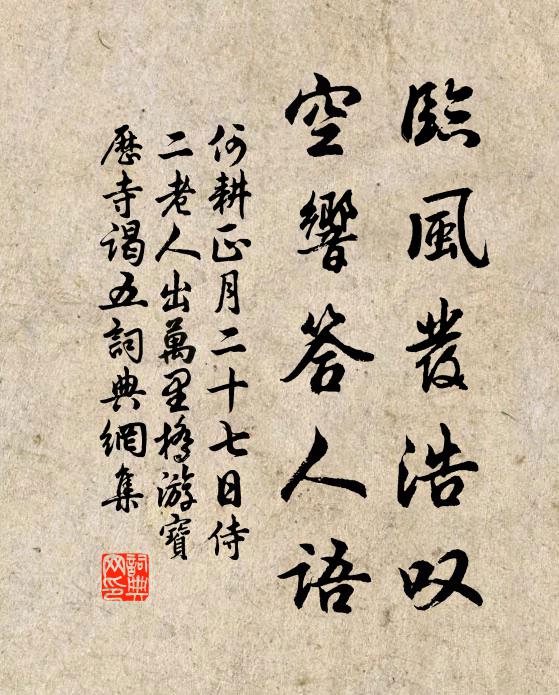 臨風發浩叹
空響答人語
何耕正月二十七日侍
二老人出萬里橋游寶
歷寺謁五詞典網集
詞典
网印